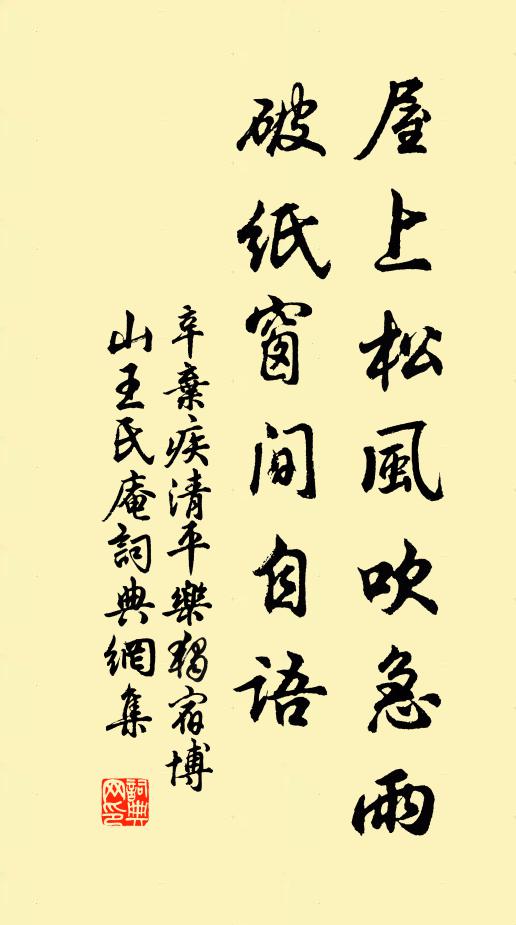 屋上松風吹急雨
破紙窗間自語
辛棄疾清平樂獨宿博
山王氏庵詞典網集
詞典
网印